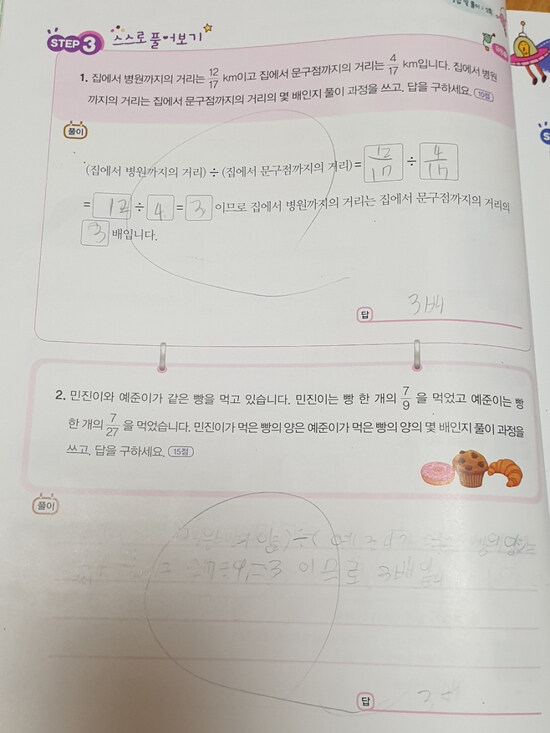 STEP 3 스스로 풀어보기
1. 집에서 병원까지의 거리는 12/17 km이고 집에서 문구점까지의 거리는 4/17 km입니다. 집에서 병원
까지의 거리는 집에서 문구점까지의 거리의 몇 배인지 풀이 과정을 쓰고, 답을 구하세요. 10점
풀이
(집에서 병원까지의 거리) ÷ (집에서 문구점까지의 거리) = 12/17 ÷ 4/17
= 12 ÷ 4 = 3 이므로 집에서 병원까지의 거리는 집에서 문구점까지의 거리의
3 배입니다.
답 3배
2. 민진이와 예준이가 같은 빵을 먹고 있습니다. 민진이는 빵 한 개의 7/9 을 먹었고 예준이는 빵
한 개의 7/27 을 먹었습니다. 민진이가 먹은 빵의 양은 예준이가 먹은 빵의 양의 몇 배인지 풀이 과정을
쓰고, 답을 구하세요. 15점
풀이
27÷9=3 이므로 3배
답